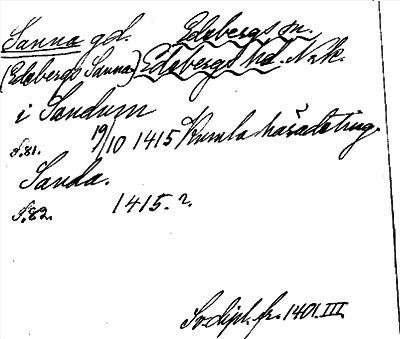 Sanna gd. Edsbergs sn.
(Edsbergs Sanna) Edsbergs hd. Närk.
i Sandum
s.81. 19/10 1415 Kumla häradsting.
Sanda.
s.82. 1415. r.
Sv. dipl. fr. 1401. III.